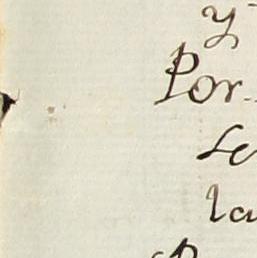 y
Por
Se
la